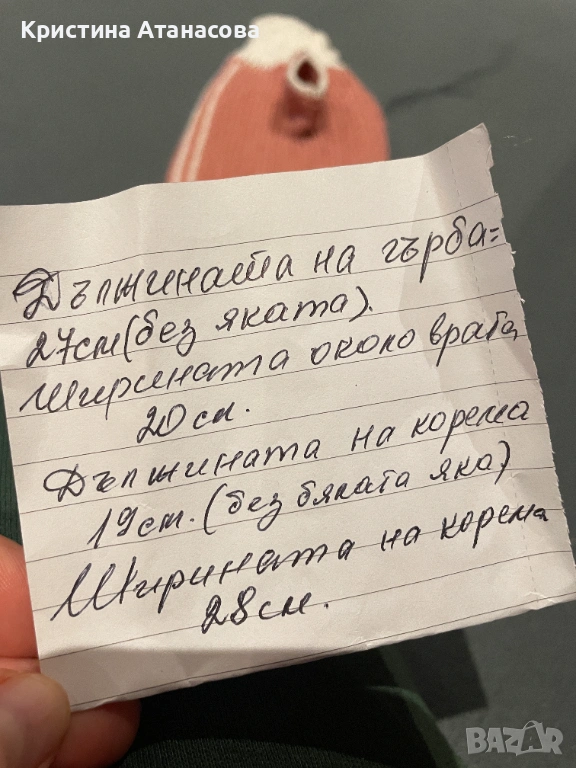 Кристина Атанасова
Дължината на гърба=
27см (без яката).
Ширината около врата
20 см.
Дължината на корема
19 см. (без бялата яка)
Ширината на корема
28 см.
BAZAR